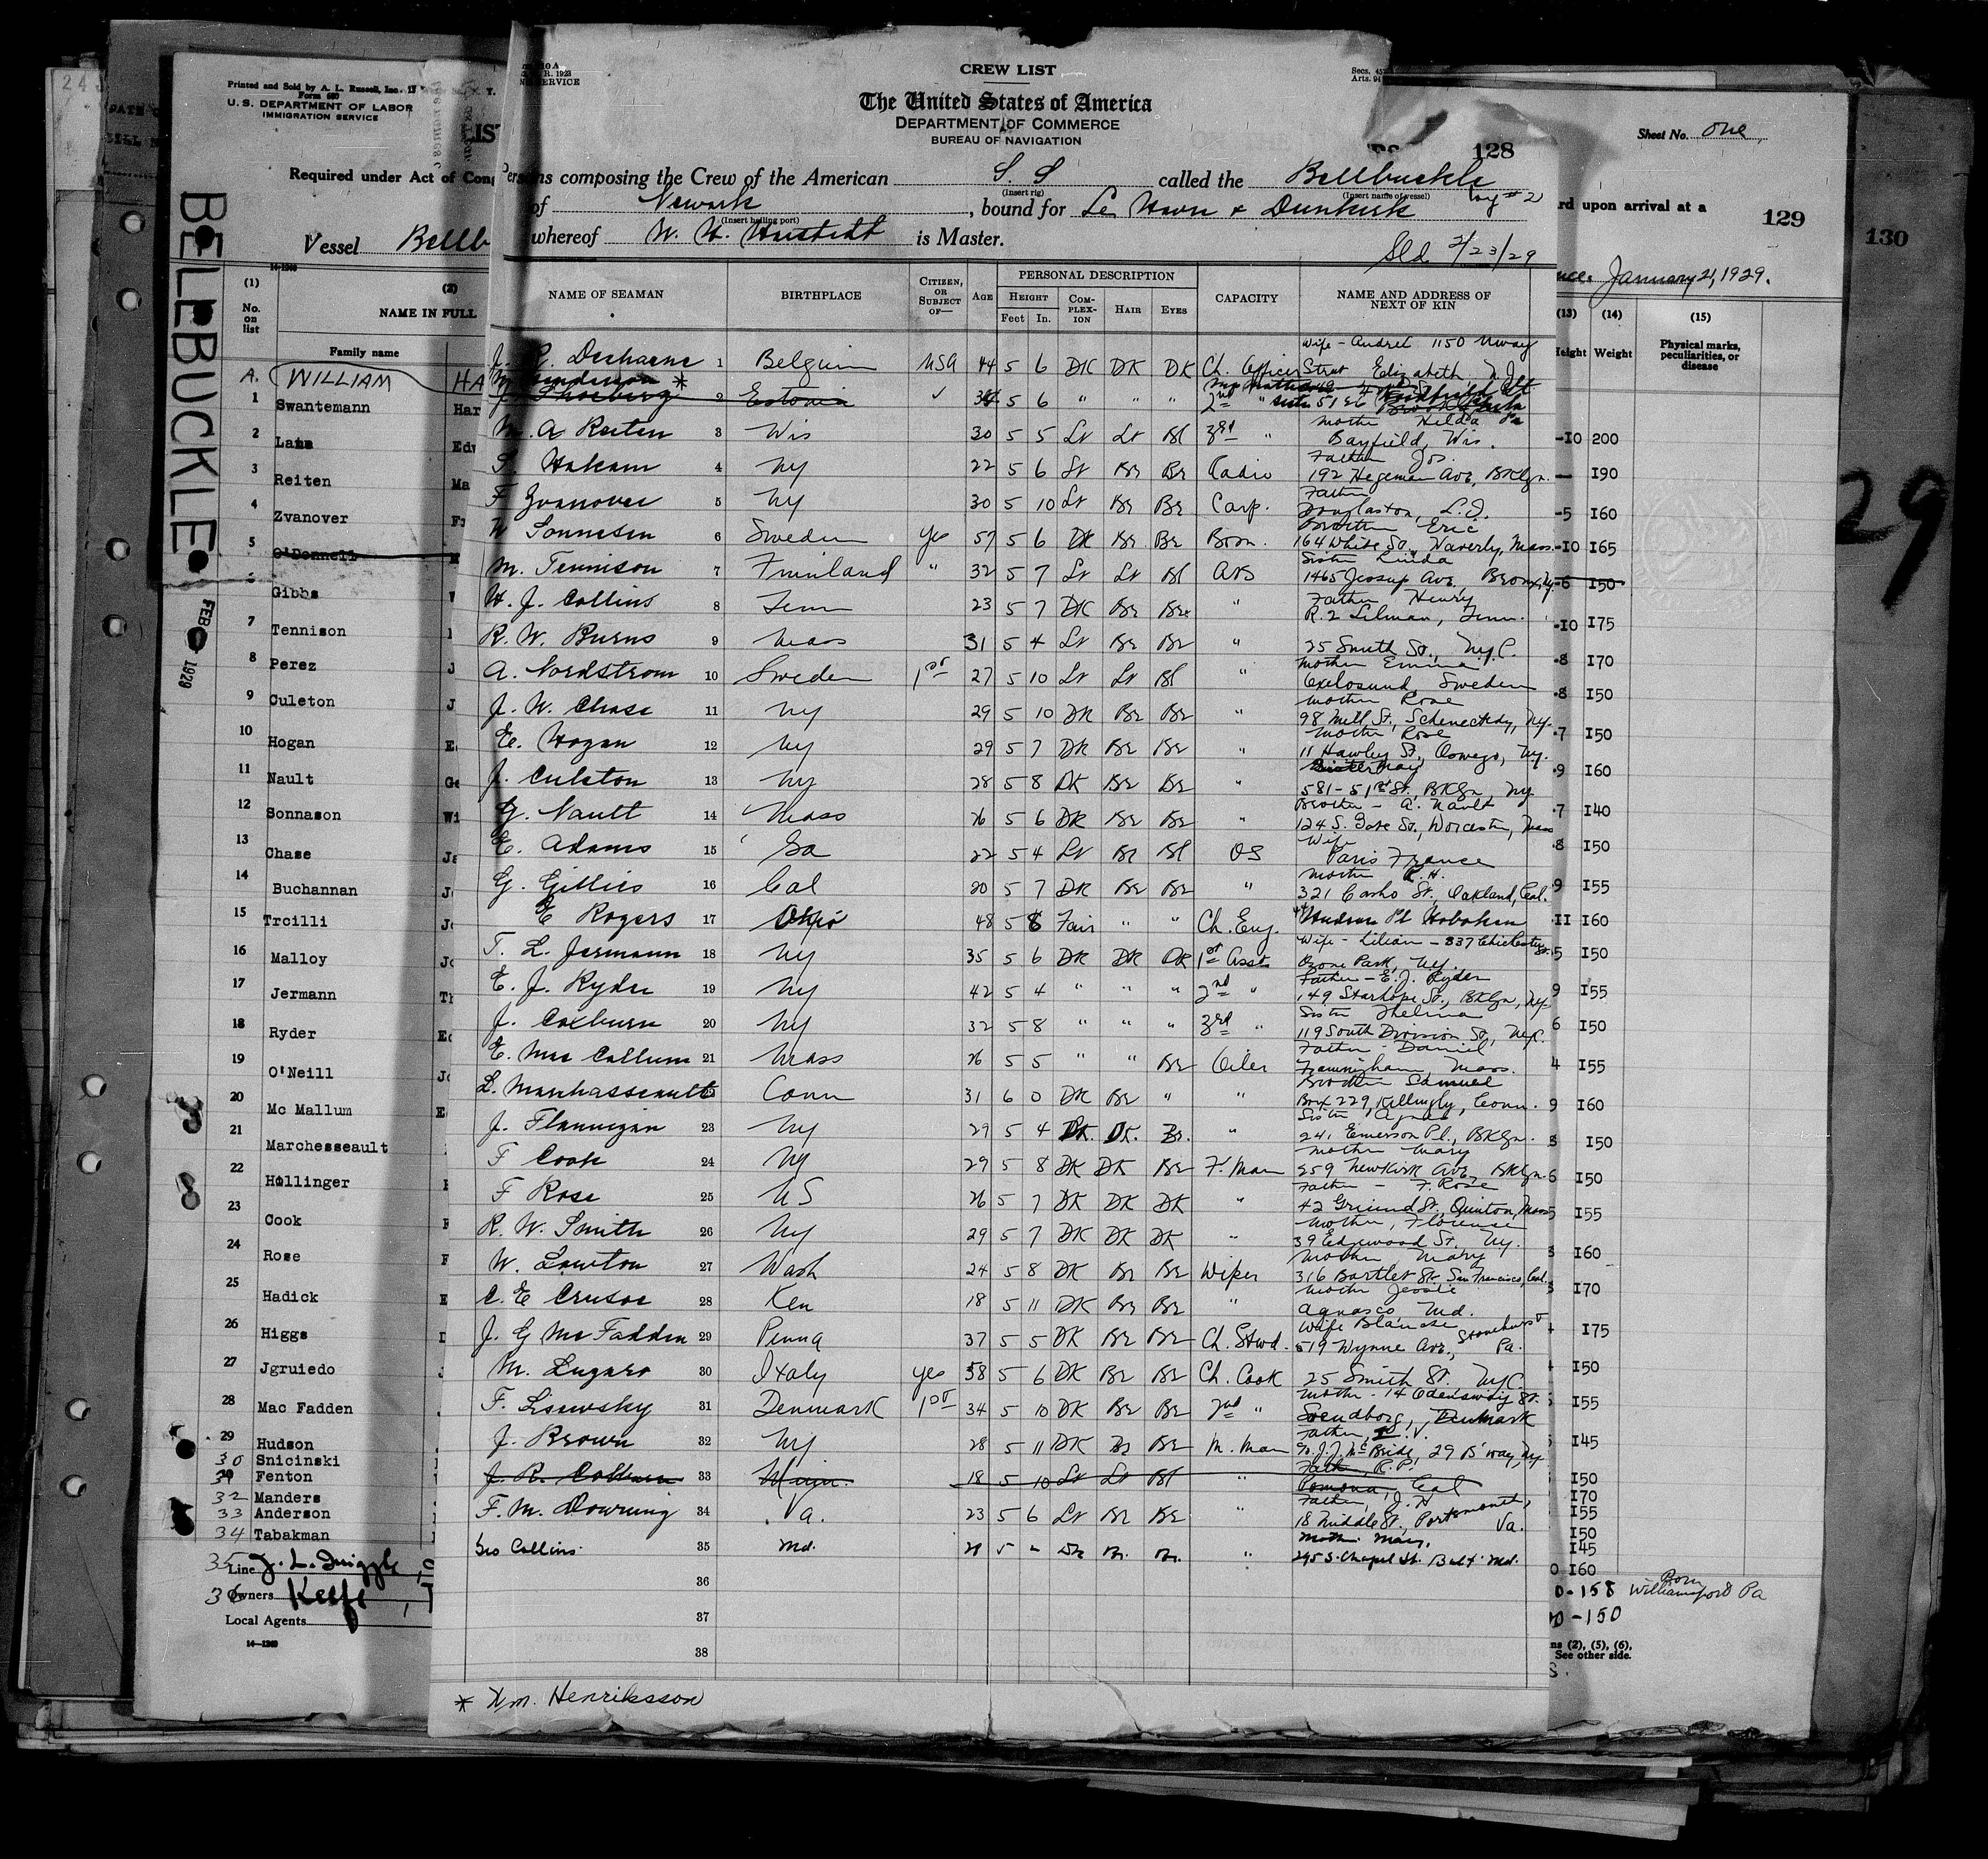 CREW LIST
The United States of America
DEPARTMENT OF COMMERCE
BUREAU OF NAVIGATION
128
Persons composing the Crew of the American S. S. called the Bellbuckle
(Insert rig) (Insert name of vessel) Voy #2
of Newark, bound for Le Havre & Dunkirk
(Insert hailing port)
whereof W. H. Hustedt is Master.
Sld 2/23/29
NAME OF SEAMAN BIRTHPLACE CITIZEN, OR SUBJECT OF— AGE PERSONAL DESCRIPTION CAPACITY NAME AND ADDRESS OF NEXT OF KIN
HEIGHT COM-PLEX-ION HAIR EYES
Feet In.
1 Belgium USA 44 5 6 DK DK DK Ch. Officer Wife - 1150 Street Elizabeth, N.J.
2 Estonia 5 6 " " " 2nd "
M. A. Reiten 3 Wis 30 5 5 Lt Lt Bl 3rd " Mother Hilda Bayfield, Wis.
S. Hakam 4 NY 22 5 6 Lt Br Br Radio Father Jos. 192 Hegeman Ave, BKlyn.
F Zvanover 5 NY 30 5 10 Lt Br Br Carp. Father Douglaston, L.I.
W Sonnesen 6 Sweden Yes 57 5 6 DK Br Br Bosn. Brother Eric 164 White St., Waverly, Mass.
M. Tennison 7 Finnland " 32 5 7 Lt Lt Bl ABS Sister Linda 1465 Jessup Ave. Bronx, NY.
H. J. Collins 8 Tenn 23 5 7 DK Br Br " Father Henry R. 2 Selman, Tenn.
R. W. Burns 9 Mass 31 5 4 Lt Br Br " 25 South St., NYC.
A. Nordstrom 10 Sweden 1st 27 5 10 Lt Lt Bl " Mother Emma Oxelosund, Sweden
J. W. Chase 11 NY 29 5 10 DK Br Br " Mother Rose 98 Mill St, Schenectdy, NY.
E. Hogan 12 NY 29 5 7 DK Br Br " Mother Rose 11 Hawley St., Oswego, NY.
J. Culeton 13 NY 28 5 8 DK Br Br " Sister May 581-51st St., BKlyn, NY
G. Nault 14 Mass 26 5 6 DK Br Br " Brother - A. Nault 124 S. Gate St., Worcester, Mass
E. Adams 15 Ga 22 5 4 Lt Br Bl OS Wife Paris France
G. Gillies 16 Cal 20 5 7 DK Br Br " Mother R.H. 321 St. Oakland, Cal.
E Rogers 17 Ohio 48 5 8 Fair " " Ch. Eng. Hudson Pl Hoboken
T. L. Jermann 18 NY 35 5 6 DK DK DK 1st Asst Wife - Lilian - 837 Chichester St. Ozone Park, NY.
E. J. Ryder 19 NY 42 5 4 " " " 2nd " Father - E. J. Ryder 149 Starhope St., BKlyn, NY
J. Coxburn 20 NY 32 5 8 " " " 3rd " Sister Thelma 119 South Division St., NYC.
E. Mac Callum 21 Mass 26 5 5 " " Br Oiler Father - Daniel Framingham, Mass.
L. Marchasseault 22 Conn 31 6 0 DK Br " " Brother Samuel Box 229, Killingly, Conn.
J. Flannigan 23 NY 29 5 4 DK. DK. Br. " Sister Agnes 241 Emerson Pl., BKlyn.
F Cook 24 NY 29 5 8 DK DK Br F. Man Mother Mary 959 Newkirk Ave, BKlyn.
F Rose 25 US 26 5 7 DK DK DK " Father - F. Rose 42 St, Quinton, Mass
R. W. Smith 26 NY 29 5 7 DK DK DK " Mother, Florence 39 Edgewood St. NY.
W. Lawton 27 Wash 24 5 8 DK Br Br Wiper Mother Mary 316 Bartlet St. San Francisco, Cal.
C. E Crusoe 28 Ken 18 5 11 DK Br Br " Mother Jessie Aquasco Md.
J. G Mc Fadden 29 Penna 37 5 5 DK Br Br Ch. Stwd. Wife Blanche 519 Wynne Ave., Stonehurst Pa.
M. Lugaro 30 Italy yes 58 5 6 DK Br Br Ch. Cook 25 South St. NYC.
F. Lisewsky 31 Denmark 1st 34 5 10 DK Br Br 2nd " Mother - 14 St. Svendborg, Denmark
J. Brown 32 NY 28 5 11 DK Br Br M. Man Father, I.V. % J.J. McBride, 29 B'way, NY
33 Minn. 18 5 10 Lt Lt Bl " Father, R.P. Pomona, Cal
F. M. Downing 34 Va. 23 5 6 Lt Br Br " Father, J. H 18 Middle St., Portsmouth, Va.
Geo Collins 35 Md. 5 Br. " Mother Mary, 295 S. Chapel St. Balt Md.
36
37
38
* Wm. Henriksson
Printed and Sold by A. L. Russell, Inc.
U. S. DEPARTMENT OF LABOR
IMMIGRATION SERVICE
Required under Act of Cong
Vessel Bellb
BELLBUCKLE
FEB 1929
(1) No. on list
(2) NAME IN FULL
Family name
A. WILLIAM HA
1 Swantemann
2 Lane
3 Reiten
4 Zvanover
5 O'Donnell
6 Gibbs
7 Tennison
8 Perez
9 Culeton
10 Hogan
11 Nault
12 Sonnason
13 Chase
14 Buchannan
15 Trcilli
16 Malloy
17 Jermann
18 Ryder
19 O'Neill
20 Mc Mallum
21 Marchesseault
22 Hollinger
23 Cook
24 Rose
25 Hadick
26 Higgs
27 Jgruiedo
28 Mac Fadden
29 Hudson
30 Snicinski
31 Fenton
32 Manders
33 Anderson
34 Tabakman
35 Line J. L. Quiggle
36 Owners Keefe
Local Agents
14—1240
Sheet No. One
rd upon arrival at a
129
130
January 21, 1929.
(13) (14) (15)
Height Weight Physical marks, peculiarities, or disease
-10 200
— 190
-5 160
-10 165
-6 150
-10 175
-8 170
-8 150
-7 150
-9 160
-7 140
-8 150
9 155
-11 160
5 150
9 155
6 150
4 155
9 160
8 150
6 150
5 155
3 160
170
175
150
155
145
150
170
155
150
145
0 160
0-158 Born Williamsport Pa
0-150
ns (2), (5), (6),
See other side.
29